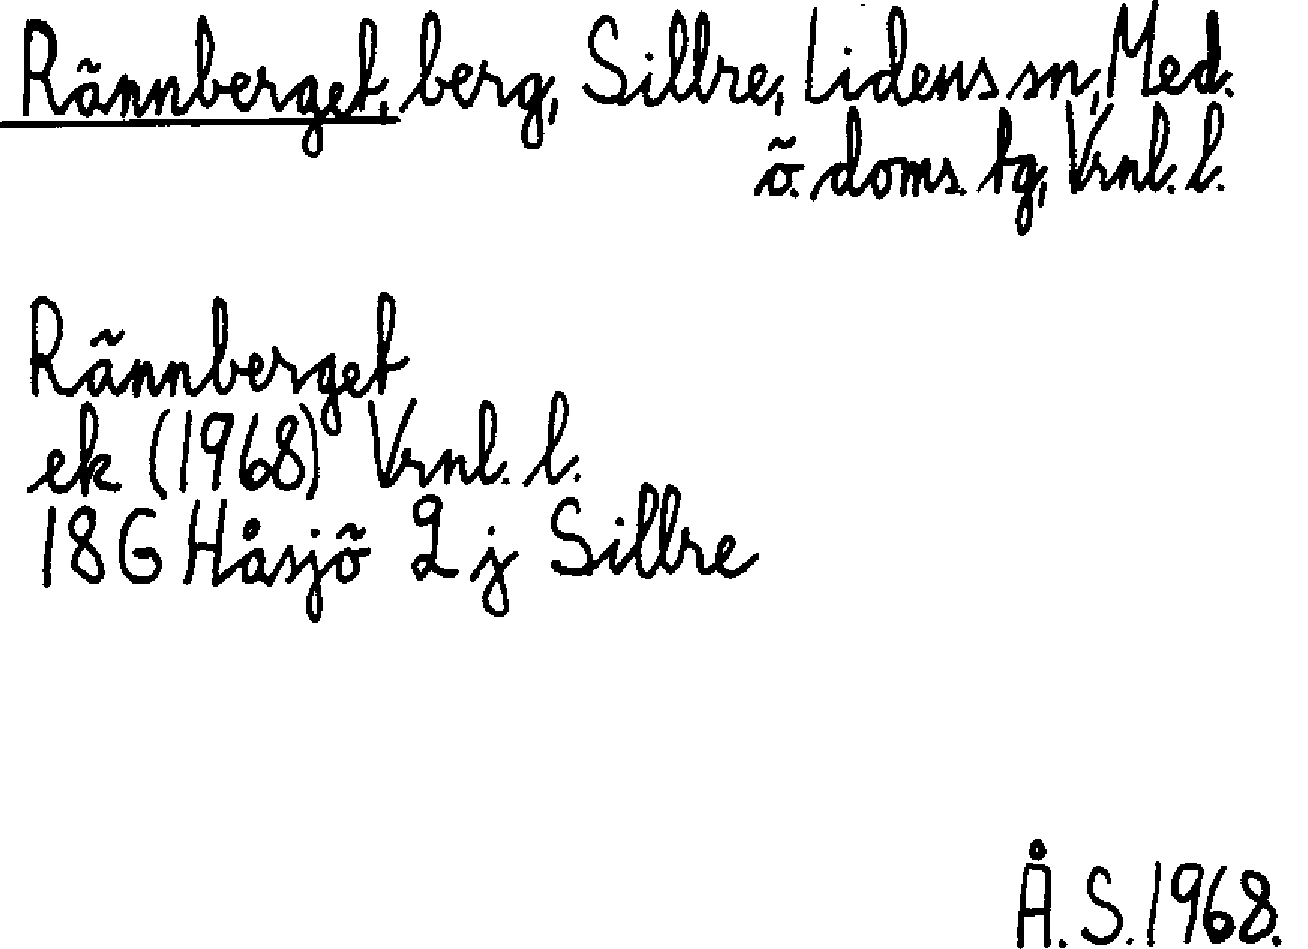 Rännberget, berg, Sillre, Lidens sn, Med.
ö. doms. tg, Vrnl. l.
Rännberget
ek (1968) Vrnl. l.
18G Håsjö 2j Sillre
Å.S.1968.